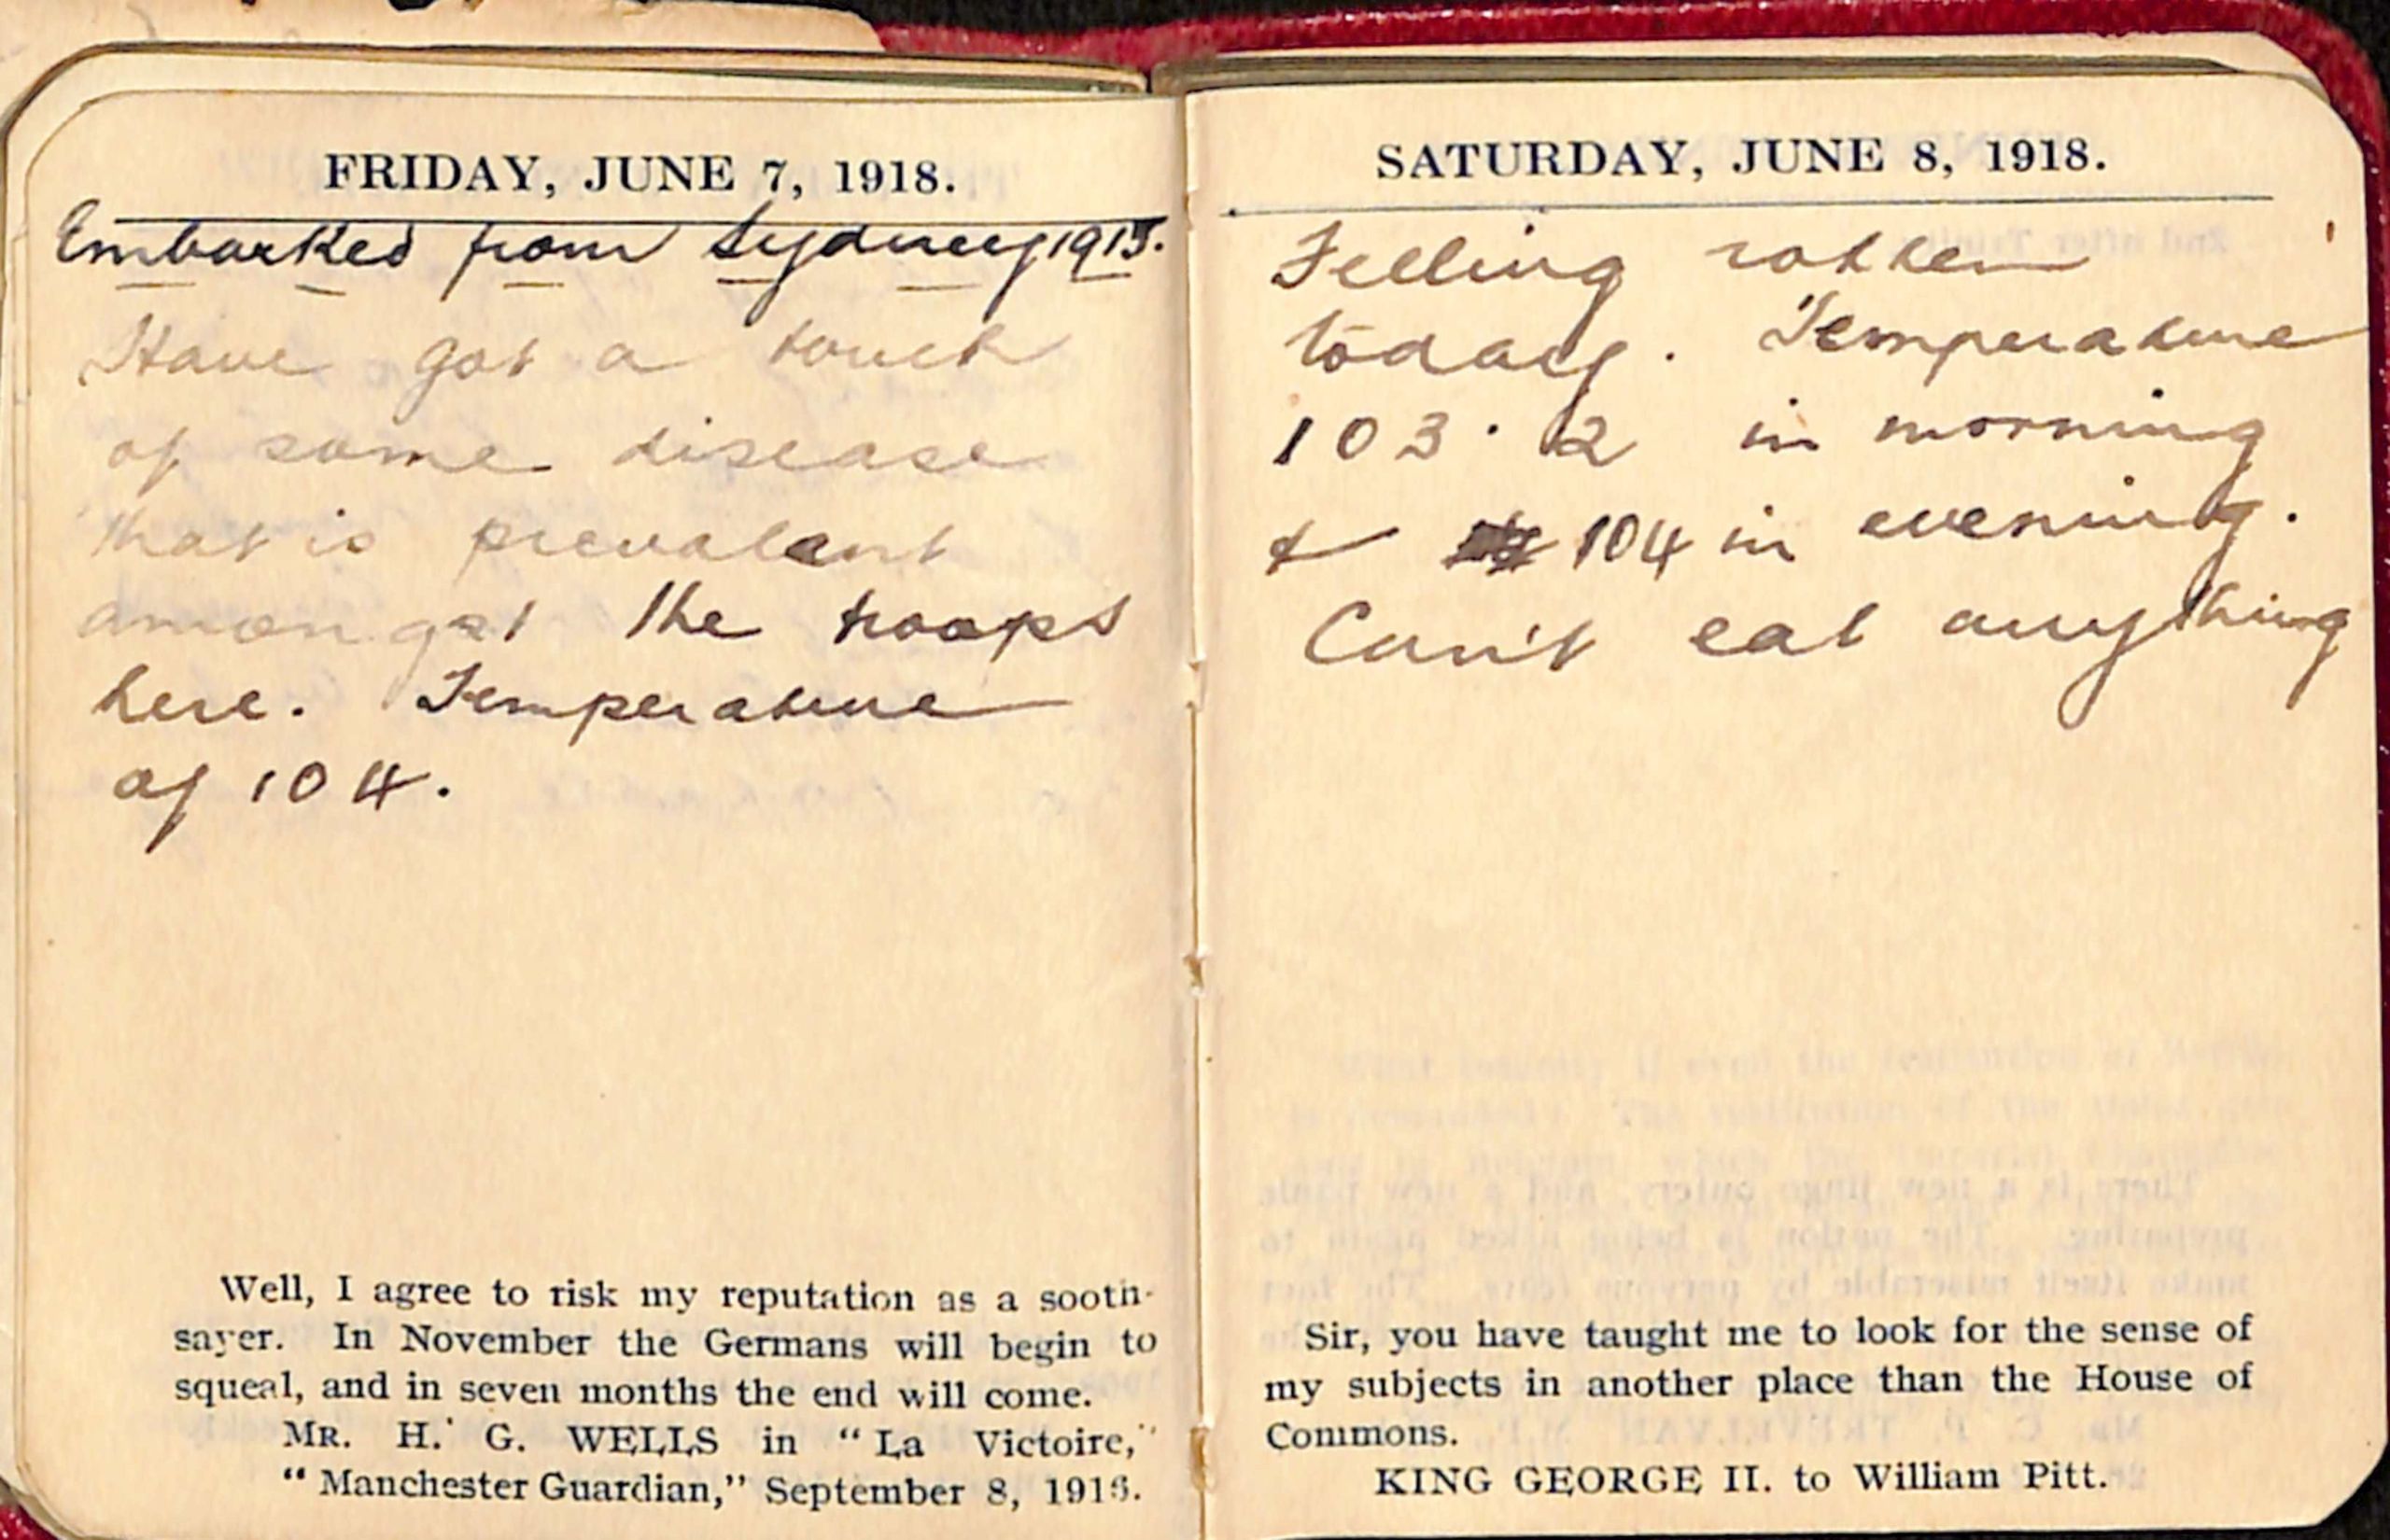 FRIDAY, JUNE 7, 1918.
Embarked from Sydney 1915.
Have got a touch
of some disease
that is prevalent
amongst the troops
here. Temperature
of 104.
Well, I agree to risk my reputation as a sooth-
sayer. In November the Germans will begin to
squeal, and in seven months the end will come.
MR. H. G. WELLS in "La Victoire,"
"Manchester Guardian," September 8, 1916.
SATURDAY, JUNE 8, 1918.
Felling rotten
today. Temperature
103.2 in morning
& 104 in evening.
Can't eat anything
Sir, you have taught me to look for the sense of
my subjects in another place than the House of
Commons.
KING GEORGE II. to William Pitt.